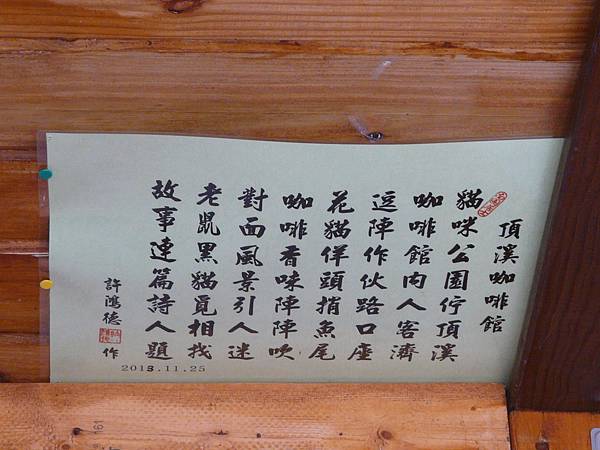 頂溪咖啡館
貓咪公園佇頂溪
咖啡館內人客濟
逗陣作伙路口座
花貓佯頭捎魚尾
咖啡香味陣陣吹
對面風景引人迷
老鼠黑貓覓相找
故事連篇詩人題
許鴻德 作
2013.11.25
161